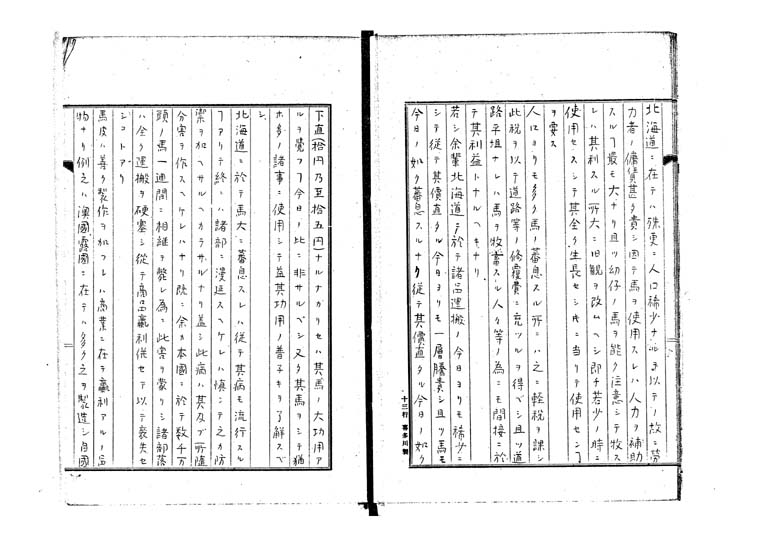 北海道ニ在テハ殊更ニ人口稀少ナルヲ以テノ故ニ労
力者ノ傭賃甚タ貴シ因テ馬ヲ使用スレハ人力ヲ補助
スルヿ最モ大ナリ且ツ幼仔ノ馬ヲ能ク注意シテ牧ス
レハ其利スル所大ニ旧観ヲ改ムヘシ即チ若少ノ時ニ
使用セスシテ其全ク生長セシ氏ニ当リテ使用センヿ
ヲ要ス
人口ヨリモ多ク馬ノ蕃息スル所ニハ之ニ軽税ヲ課シ
此税ヲ以テ道路等ノ修覆費ニ充ツルヲ得ベシ且ツ道
路平坦ナレハ馬ヲ牧畜スル人々等ノ為ニモ間接ニ於
テ其利益トナルヘキナリ
若シ余輩北海道ニ於テ諸品運搬ノ今日ヨリモ稀少ニ
シテ従テ其價直タル今日ヨリモ一層騰貴シ且ツ馬モ
今日ノ如ク蕃息スルナク従テ其價直タル今日ノ如ク
十三行 喜多川製
下直(拾円乃至拾五円)ナルナカリセハ其馬ノ大功用ア
ルヲ覚フヿ今日ノ比ニ非サルベシ又タ其馬ヲシテ猶
ホ多ノ諸事ニ使用シテ益其功用ノ普キヲ了解スベ
シ
北海道ニ於テ馬大ニ蕃息スレハ従テ其病モ流行スル
ヿアリテ終ニハ諸部ニ漫延スヘケレハ慎ンテ之カ防
禦ヲ加ヘサルヘカラサルナリ蓋シ此病ハ其及フ所随
分害ヲ作スヘケレハナリ既ニ余カ本國ニ於テ数千万
頭ノ馬一週間ニ相継テ斃レ為ニ此害ヲ蒙リシ諸部落
ハ全ク運搬ヲ硬塞シ従テ商品贏利併セテ以テ衰失セ
シコトアリ
馬皮ハ善ク製作ヲ加フレハ商業ニ在テ贏利アルノ品
物ナリ例之ハ漢國露國ニ在テハ多ク之ヲ製造シ自國